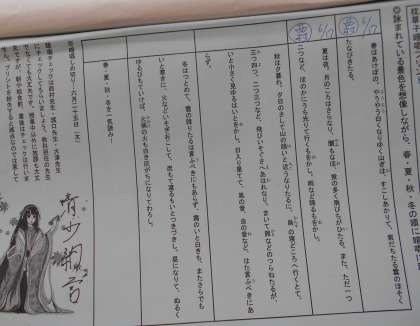 枕草子暗唱プリント
◎詠まれている景色を想像しながら、春・夏・秋・冬の順に暗唱に
春はあけぼの。やうやう白くなりゆく山ぎは、すこしあかりて、紫だちたる雲のほそく
たなびきたる。
夏は夜。月のころはさらなり、闇もなほ、蛍の多く飛びちがひたる。また、ただ一つ
二つなど、ほのかにうち光りて行くもをかし。雨など降るもをかし。
秋は夕暮れ。夕日のさして山の端いと近うなりたるに、烏の寝どころへ行くとて、
三つ四つ、二つ三つなど、飛びいそぐさへあはれなり。まいて雁などのつらねたるが、
いと小さく見ゆるはいとをかし。日入り果てて、風の音、虫の音など、はた言ふべきにあ
らず。
冬はつとめて。雪の降りたるは言ふべきにもあらず、霜のいと白きも、またさらでも
いと寒きに、火などいそぎおこして、炭もて渡るもいとつきづきし。昼になりて、ぬるく
ゆるびもていけば、火桶の火も白き灰がちになりてわろし。
春・夏・秋・冬を一気読み！
暗唱チェックは西村先生・濱口先生・大澤先生
にチェックしてもらいましょう。教科担任の先生
清少納言